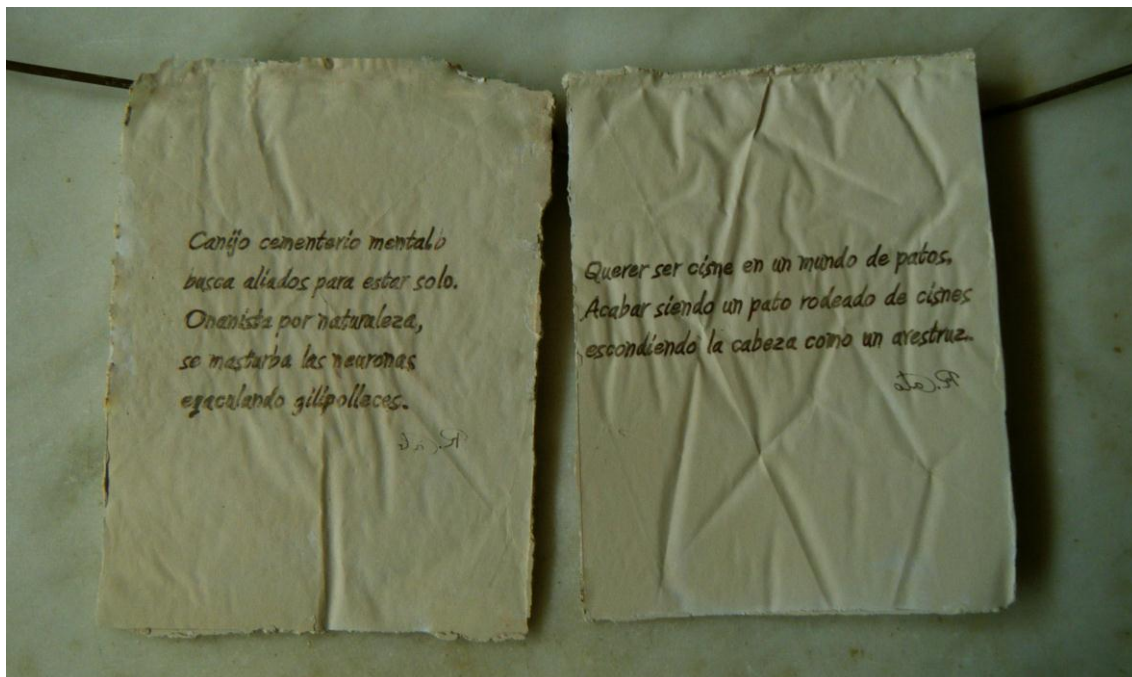 Canijo cementerio mental
busca aliados para estar solo.
Onanista por naturaleza,
se masturba las neuronas
eyaculando gilipolleces.
Querer ser cisne en un mundo de patos.
Acabar siendo un pato rodeado de cisnes
escondiendo la cabeza como un avestruz.